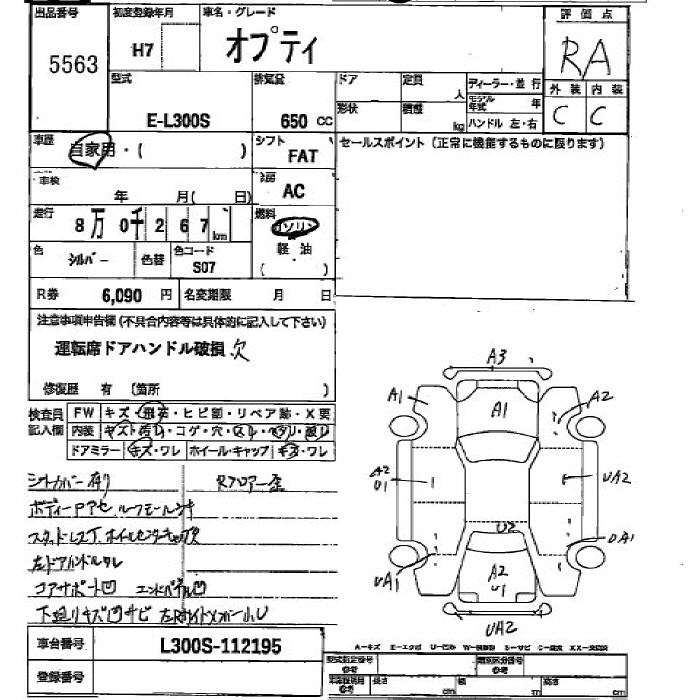 出品番号
5563
初度登録年月
H7
車名・グレード
オプティ
評価点
RA
型式
E-L300S
排気量
650 cc
ドア
定員
人
形状
積載
kg
ディーラー・並行
モデル年式
年
ハンドル 左・右
外装 内装
C C
車歴
自家用・( )
シフト
FAT
セールスポイント (正常に機能するものに限ります)
車検
年 月( 日)
冷房
AC
走行
8万0千267 km
燃料
ガソリン
軽・油
( )
色
シルバー
色替
色コード
S07
R券 6,090 円
名変期限 月 日
注意事項申告欄 (不具合内容等は具体的に記入して下さい)
運転席ドアハンドル破損 欠
修復歴 有 (箇所 )
検査員記入欄
FW キズ・飛石・ヒビ割・リペア跡・X要
内装
ドアミラー キズ・ワレ ホイール・キャップ キズ・ワレ
シートカバー有り
ボディー
左ドアハンドルワレ
コアサポート凹 エンドパネル凹
下廻りキズ凹サビ
車台番号
L300S-112195
登録番号
A3
A1
A1
A2
A2
U1
UA2
U2
UA1
UA1
A2
U1
UA2
A-キズ E-エクボ U-凹み
型式指定番号
参考
類別区分番号
参考
長さ
cm
幅
cm
高さ
cm